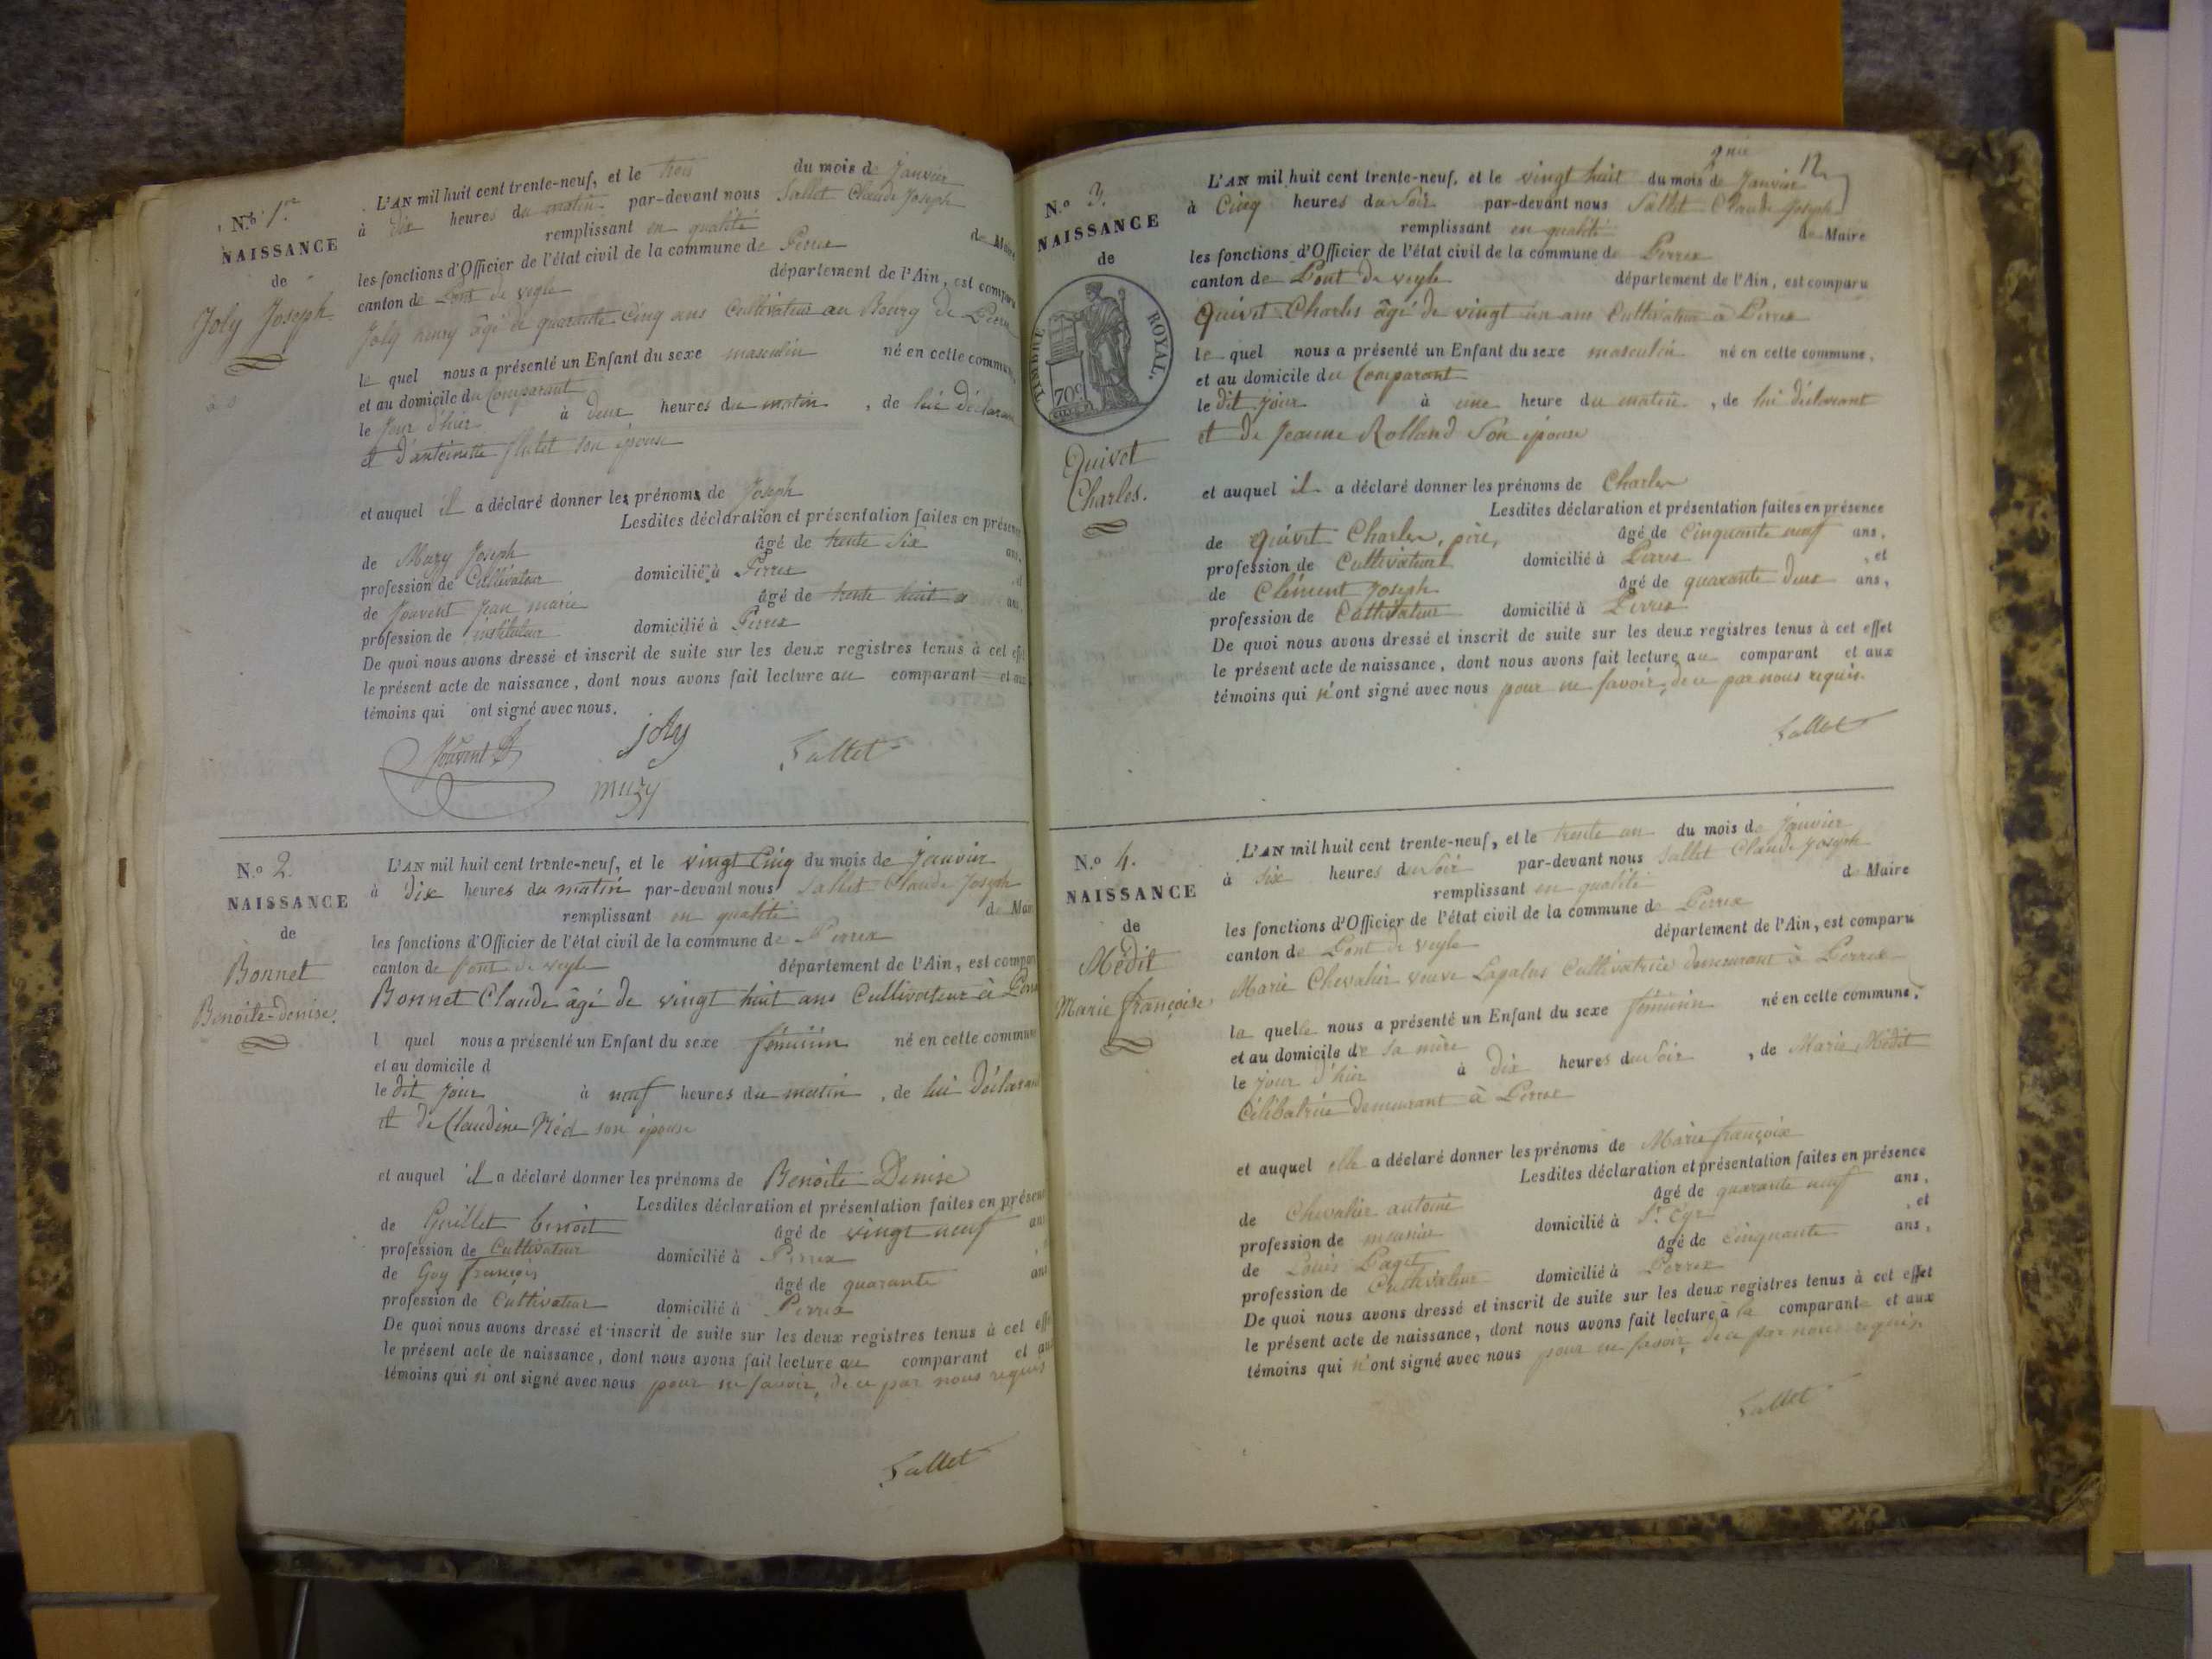 N.º 1er
NAISSANCE
de
Joly Joseph
L'AN mil huit cent trente-neuf, et le trois du mois de Janvier
à dix heures du matin par-devant nous Sallet Claude Joseph
remplissant en qualité de Maire
les fonctions d'Officier de l'état civil de la commune de Perrex
canton de Pont de veyle département de l'Ain, est comparu
Joly henry âgé de quarante Cinq ans Cultivateur au Bourg de Perrex
le quel nous a présenté un Enfant du sexe masculin né en cette commune,
et au domicile du Comparant
le Jour d'hier à deux heures du matin, de lui déclarant
et d'antoinette flutet son épouse
et auquel il a déclaré donner les prénoms de Joseph
Lesdites déclaration et présentation faites en présence
de Muzy Joseph âgé de trente six ans,
profession de Cultivateur domicilié à Perrex, et
de Jouvent Jean marie âgé de trente huit ans,
profession de instituteur domicilié à Perrex
De quoi nous avons dressé et inscrit de suite sur les deux registres tenus à cet effet
le présent acte de naissance, dont nous avons fait lecture au comparant et aux
témoins qui ont signé avec nous.
Jouvent joly Sallet
muzy
N.º 2.
NAISSANCE
de
Bonnet
Benoite-denise.
L'AN mil huit cent trente-neuf, et le vingt Cinq du mois de Janvier
à dix heures du matin par-devant nous Sallet Claude Joseph
remplissant en qualité de Maire
les fonctions d'Officier de l'état civil de la commune de Perrex
canton de pont de veyle département de l'Ain, est comparu
Bonnet Claude âgé de vingt huit ans Cultivateur à Perrex
l quel nous a présenté un Enfant du sexe féminin né en cette commune
et au domicile d
le dit Jour à neuf heures du matin, de lui déclarant
et de Claudine son épouse
et auquel il a déclaré donner les prénoms de Benoite Denise
Lesdites déclaration et présentation faites en présence
de Guillet benoit âgé de vingt neuf ans
profession de Cultivateur domicilié à Perrex
de Goy françois âgé de quarante ans
profession de Cultivateur domicilié à Perrex
De quoi nous avons dressé et inscrit de suite sur les deux registres tenus à cet effet
le présent acte de naissance, dont nous avons fait lecture au comparant et aux
témoins qui n'ont signé avec nous pour ne savoir, de ce par nous requis
Sallet
12
N.º 3.
NAISSANCE
de
TIMBRE ROYAL.
70c
Quivet
Charles.
L'AN mil huit cent trente-neuf, et le vingt huit du mois de Janvier
à Cinq heures du Soir par-devant nous Sallet Claude Joseph
remplissant en qualité de Maire
les fonctions d'Officier de l'état civil de la commune de Perrex
canton de Pont de veyle département de l'Ain, est comparu
Quivet Charles âgé de vingt un ans Cultivateur à Perrex
le quel nous a présenté un Enfant du sexe masculin né en cette commune,
et au domicile du Comparant
le dit jour à une heure du matin, de lui déclarant
et de Jeanne Rolland Son épouse
et auquel il a déclaré donner les prénoms de Charles
Lesdites déclaration et présentation faites en présence
de Quivet Charles, père, âgé de Cinquante neuf ans,
profession de Cultivateur domicilié à Perrex, et
de Clément Joseph âgé de quarante deux ans,
profession de Cultivateur domicilié à Perrex
De quoi nous avons dressé et inscrit de suite sur les deux registres tenus à cet effet
le présent acte de naissance, dont nous avons fait lecture au comparant et aux
témoins qui n'ont signé avec nous pour ne savoir, de ce par nous requis.
Sallet
N.º 4.
NAISSANCE
de
Médit
Marie françoise
L'AN mil huit cent trente-neuf, et le trente un du mois de Janvier
à six heures du Soir par-devant nous Sallet Claude Joseph
remplissant en qualité de Maire
les fonctions d'Officier de l'état civil de la commune de Perrex
canton de Pont de veyle département de l'Ain, est comparu
Marie Chevalier veuve Lapalus Cultivatrice demeurant à Perrex
la quelle nous a présenté un Enfant du sexe féminin né en cette commune,
et au domicile de sa mère
le jour d'hier à dix heures du Soir, de Marie Médit
Célibatrice demeurant à Perrex
et auquel elle a déclaré donner les prénoms de Marie françoise
Lesdites déclaration et présentation faites en présence
de Chevalier antoine âgé de quarante neuf ans,
profession de meunier domicilié à St. Cyr, et
de Louis Paget âgé de cinquante ans,
profession de Cultivateur domicilié à Perrex
De quoi nous avons dressé et inscrit de suite sur les deux registres tenus à cet effet
le présent acte de naissance, dont nous avons fait lecture à la comparante et aux
témoins qui n'ont signé avec nous pour ne savoir, de ce par nous requis.
Sallet